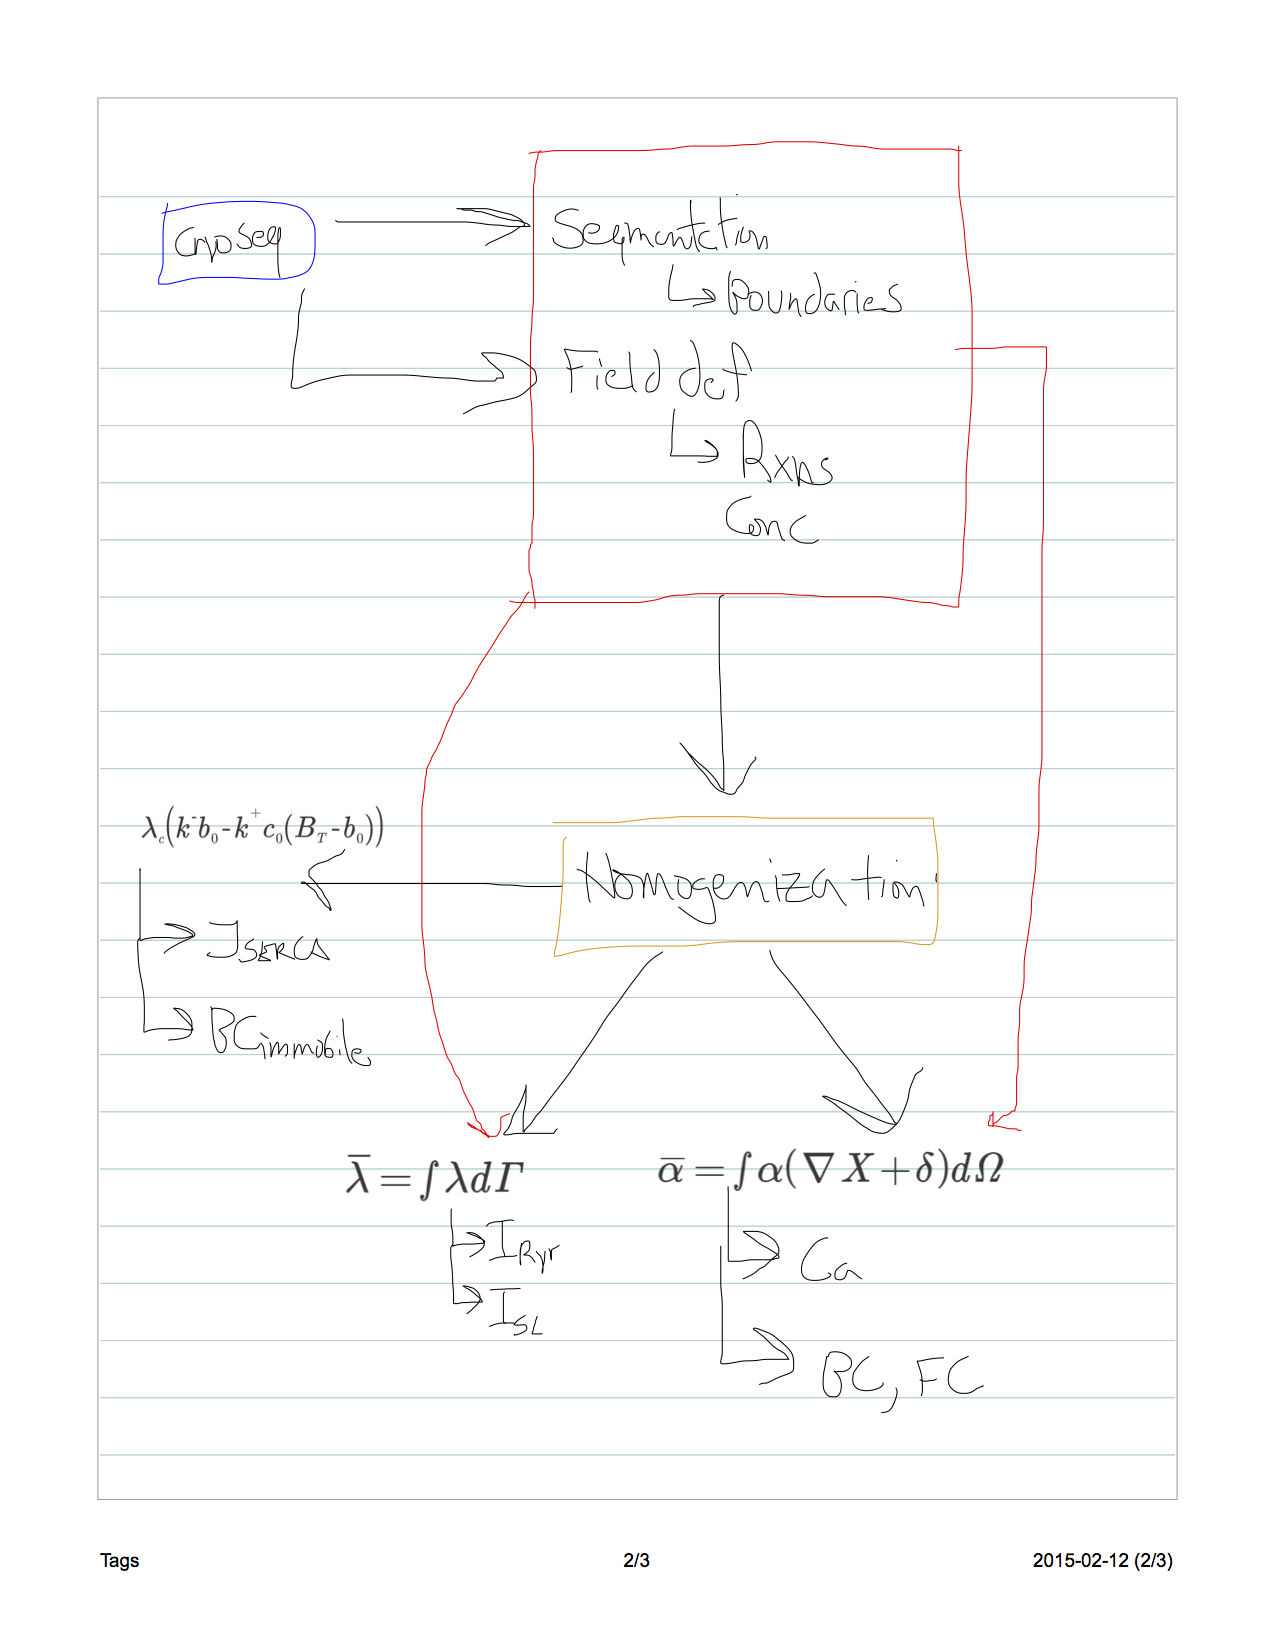 CryoSeg
Segmentation
Boundaries
Field def
Rxns
Conc
λc(k⁻b₀-k⁺c₀(B_T-b₀))
Homogenization
J_SERCA
BC immobile
λ̅=∫λdΓ
α̅=∫α(∇X+δ)dΩ
I_Ryr
Ca
I_SL
BC, FC
Tags 2/3 2015-02-12 (2/3)